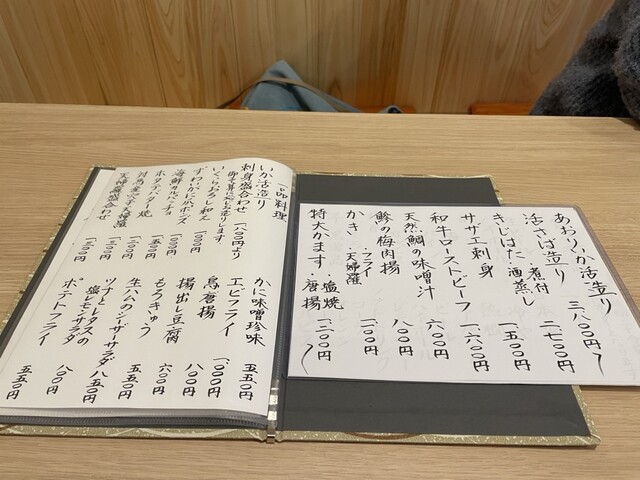 あおりいか活造り 三、八〇〇円〜
活さば造り 二、七〇〇円
きじはた 煮付 酒蒸し 一、五〇〇円
サザエ刺身 一、六〇〇円
和牛ローストビーフ
天然鯛の味噌汁 六〇〇円
鯵の梅肉揚 八〇〇円
かき フライ・天婦羅 一、一〇〇円
特大かます・塩焼・唐揚 一、二〇〇円〜
一品料理
いか活造り
刺身盛合わせ 一、八〇〇円より
御予算に応じお造りします
いくらおろし和え
ずわいかに爪ポン
海鮮カルパッチョ 一、一〇〇円
ホタテバター焼
天婦羅盛合わせ
かに味噌珍味 五五〇円
エビフライ 一、一〇〇円
鳥唐揚 八〇〇円
揚出し豆腐 六〇〇円
もろきゅう 五五〇円
生ハムのシーザーサラダ 八五〇円
ツナとレタスの塩レモンサラダ 八〇〇円
ポテトフライ 五五〇円